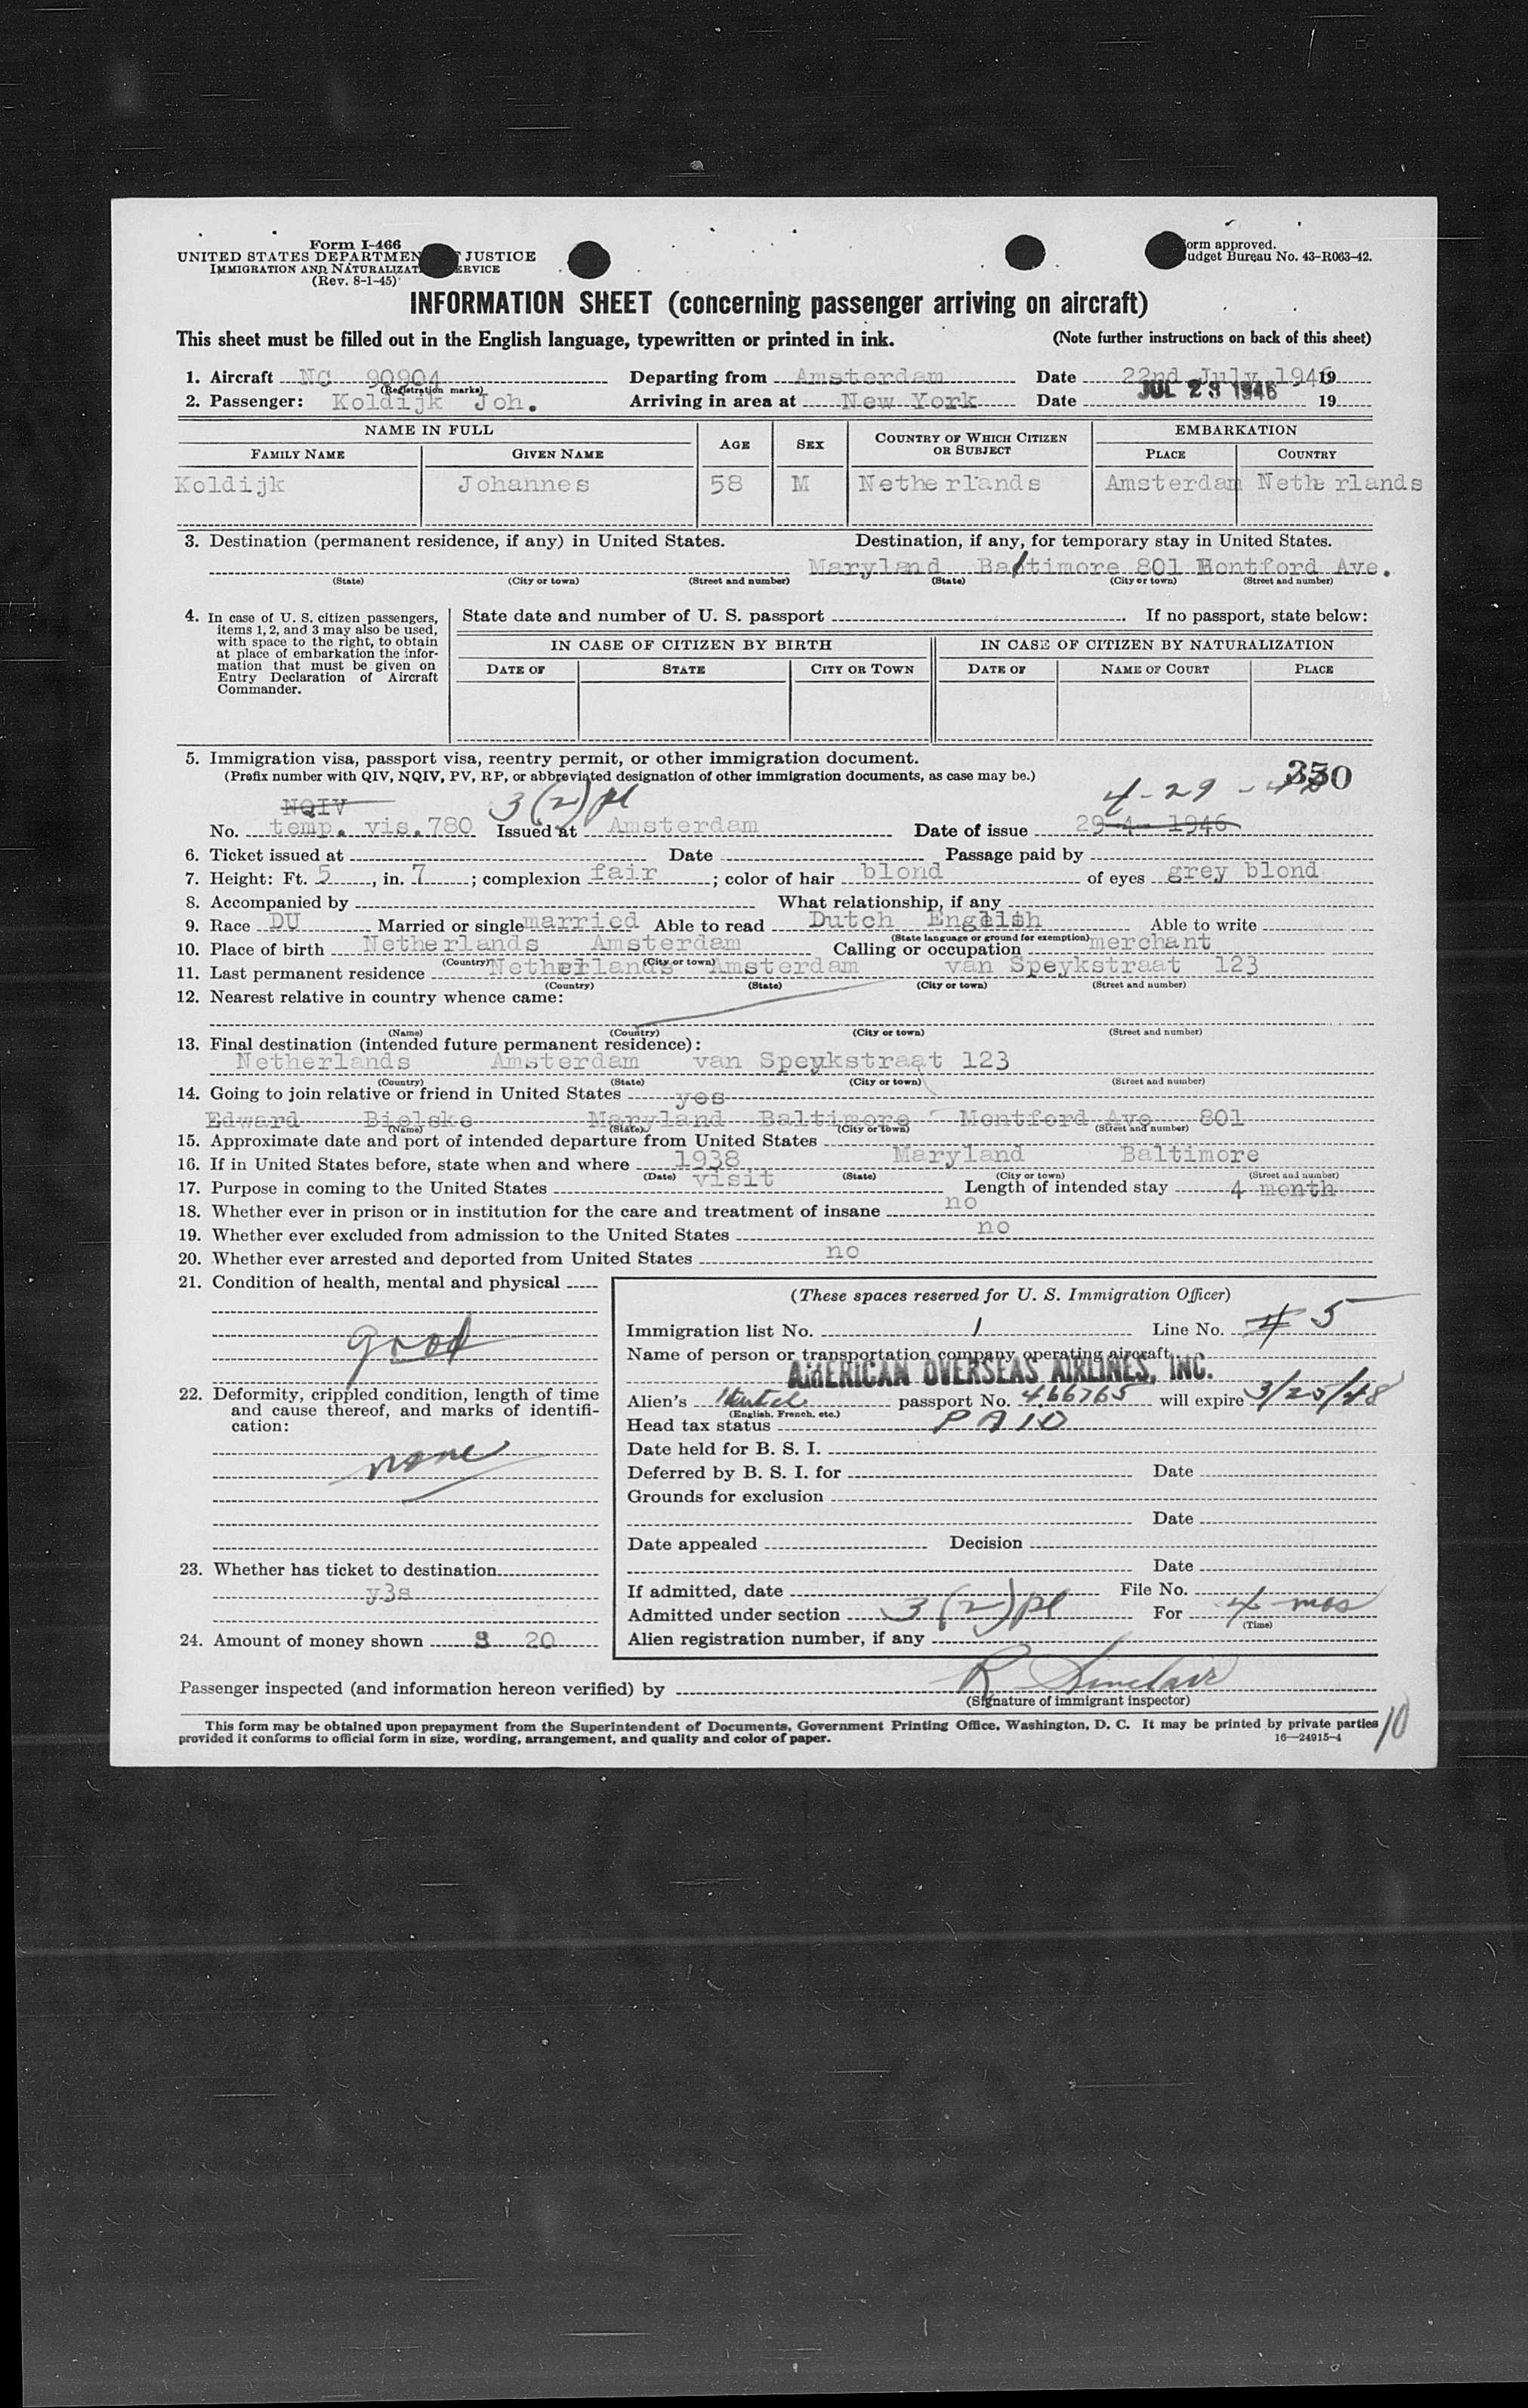 Form I-466
UNITED STATES DEPARTMENT JUSTICE
IMMIGRATION AND NATURALIZAT ERVICE
(Rev. 8-1-45)
orm approved.
udget Bureau No. 43-R063-42.
INFORMATION SHEET (concerning passenger arriving on aircraft)
This sheet must be filled out in the English language, typewritten or printed in ink. (Note further instructions on back of this sheet)
1. Aircraft NC 90904 Departing from Amsterdam Date 22nd July 1946 19
(Registration marks)
2. Passenger: Koldijk Joh. Arriving in area at New York Date JUL 23 1946 19
NAME IN FULL AGE SEX COUNTRY OF WHICH CITIZEN OR SUBJECT EMBARKATION
FAMILY NAME GIVEN NAME PLACE COUNTRY
Koldijk Johannes 58 M Netherlands Amsterdam Netherlands
3. Destination (permanent residence, if any) in United States. Destination, if any, for temporary stay in United States.
Maryland Baltimore 801 Montford Ave.
(State) (City or town) (Street and number) (State) (City or town) (Street and number)
4. In case of U. S. citizen passengers, items 1, 2, and 3 may also be used, with space to the right, to obtain at place of embarkation the information that must be given on Entry Declaration of Aircraft Commander.
State date and number of U. S. passport If no passport, state below:
IN CASE OF CITIZEN BY BIRTH IN CASE OF CITIZEN BY NATURALIZATION
DATE OF STATE CITY OR TOWN DATE OF NAME OF COURT PLACE
5. Immigration visa, passport visa, reentry permit, or other immigration document.
(Prefix number with QIV, NQIV, PV, RP, or abbreviated designation of other immigration documents, as case may be.)
NQIV 3(2) pl 4-29
No. temp. vis. 780 Issued at Amsterdam Date of issue 29-4-1946
6. Ticket issued at Date Passage paid by
7. Height: Ft. 5, in. 7; complexion fair; color of hair blond of eyes grey blond
8. Accompanied by What relationship, if any
9. Race DU Married or single married Able to read Dutch English Able to write
(State language or ground for exemption)
10. Place of birth Netherlands Amsterdam Calling or occupation merchant
(Country) (City or town)
11. Last permanent residence Netherlands Amsterdam van Speykstraat 123
(Country) (State) (City or town) (Street and number)
12. Nearest relative in country whence came:
(Name) (Country) (City or town) (Street and number)
13. Final destination (intended future permanent residence):
Netherlands Amsterdam van Speykstraat 123
(Country) (State) (City or town) (Street and number)
14. Going to join relative or friend in United States yes
Edward Bielske Maryland Baltimore Montford Ave 801
(Name) (State) (City or town) (Street and number)
15. Approximate date and port of intended departure from United States
16. If in United States before, state when and where 1938 Maryland Baltimore
(Date) (State) (City or town) (Street and number)
17. Purpose in coming to the United States visit Length of intended stay 4 month
18. Whether ever in prison or in institution for the care and treatment of insane no
19. Whether ever excluded from admission to the United States no
20. Whether ever arrested and deported from United States no
21. Condition of health, mental and physical
good
22. Deformity, crippled condition, length of time and cause thereof, and marks of identification:
none
23. Whether has ticket to destination
y3s
24. Amount of money shown $ 20
(These spaces reserved for U. S. Immigration Officer)
Immigration list No. 1 Line No. 5
Name of person or transportation company operating aircraft
AMERICAN OVERSEAS AIRLINES, INC.
Alien's passport No. 466765 will expire 3/25/48
(English, French, etc.)
Head tax status PAID
Date held for B. S. I.
Deferred by B. S. I. for Date
Grounds for exclusion
Date
Date appealed Decision
Date
If admitted, date File No.
Admitted under section 3(2) pl For 4 mos
(Time)
Alien registration number, if any
Passenger inspected (and information hereon verified) by R Sinclair
(Signature of immigrant inspector)
This form may be obtained upon prepayment from the Superintendent of Documents, Government Printing Office, Washington, D. C. It may be printed by private parties
provided it conforms to official form in size, wording, arrangement, and quality and color of paper. 16—24915-4
10